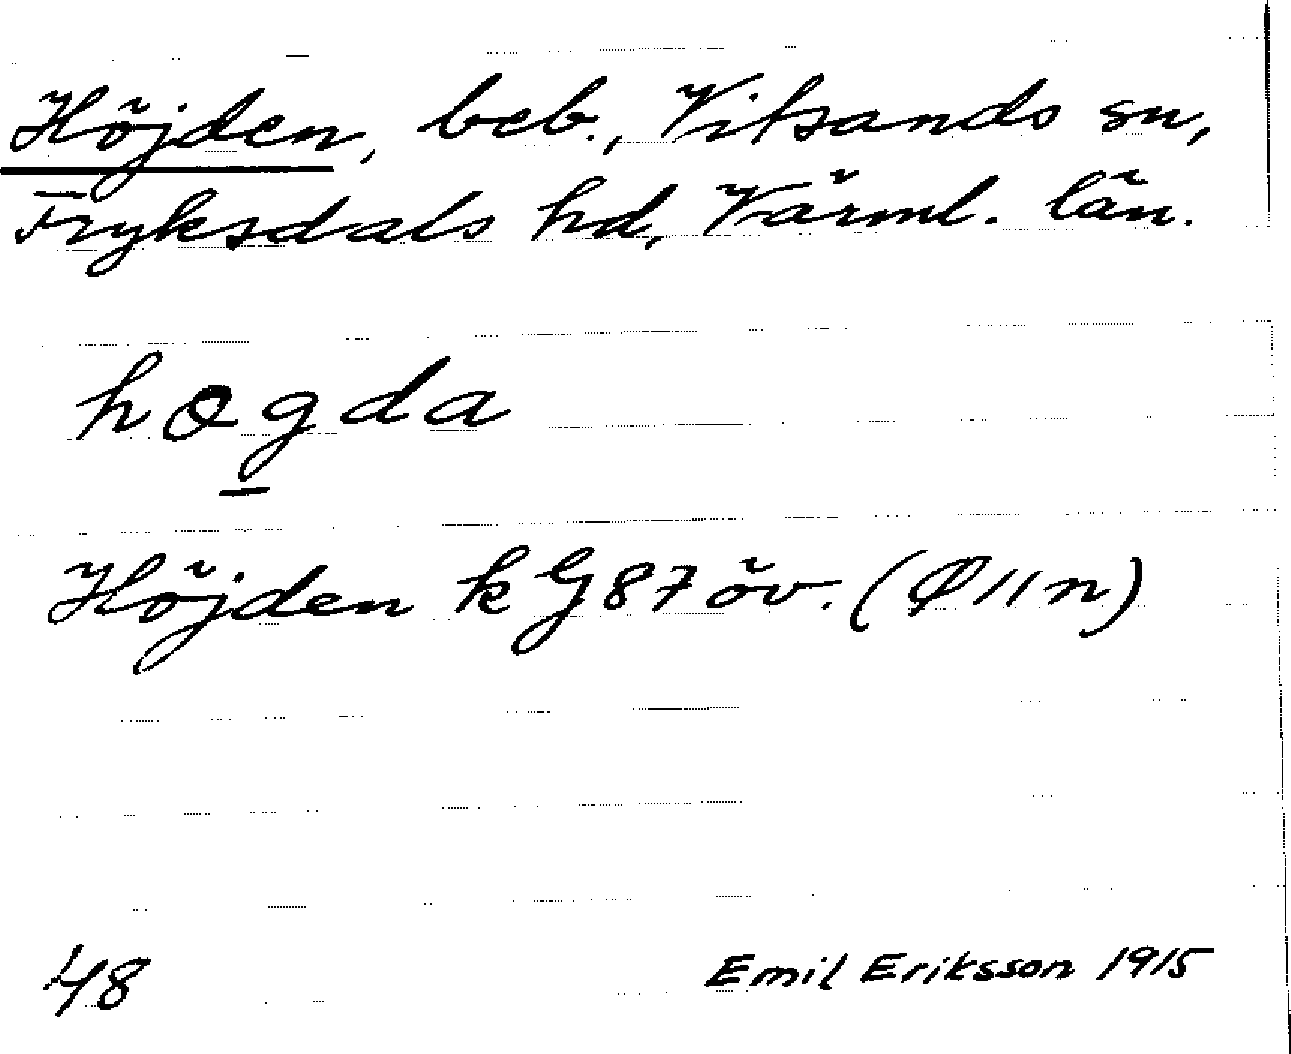 Höjden, beb., Vitsands sn,
Fryksdals hd, Värml. län.
høgda
Höjden k G 87 öv. (Ø 11 n)
48
Emil Eriksson 1915